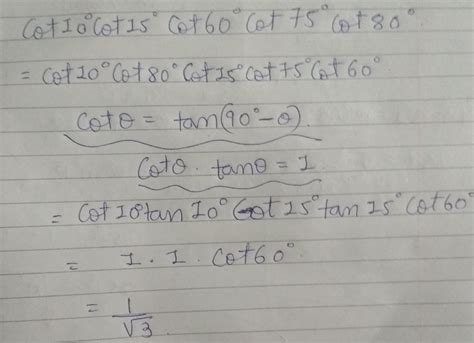 Cot10° Cot15° Cot60° Cot 75° Cot80°.
= Cot10° Cot80° Cot15° Cot75° Cot60°
Cotθ = tan(90°-θ).
Cotθ . tanθ = 1
= Cot10° tan10° Cot15° tan15° Cot60°
= 1 . 1 . Cot60°
= 1/√3.